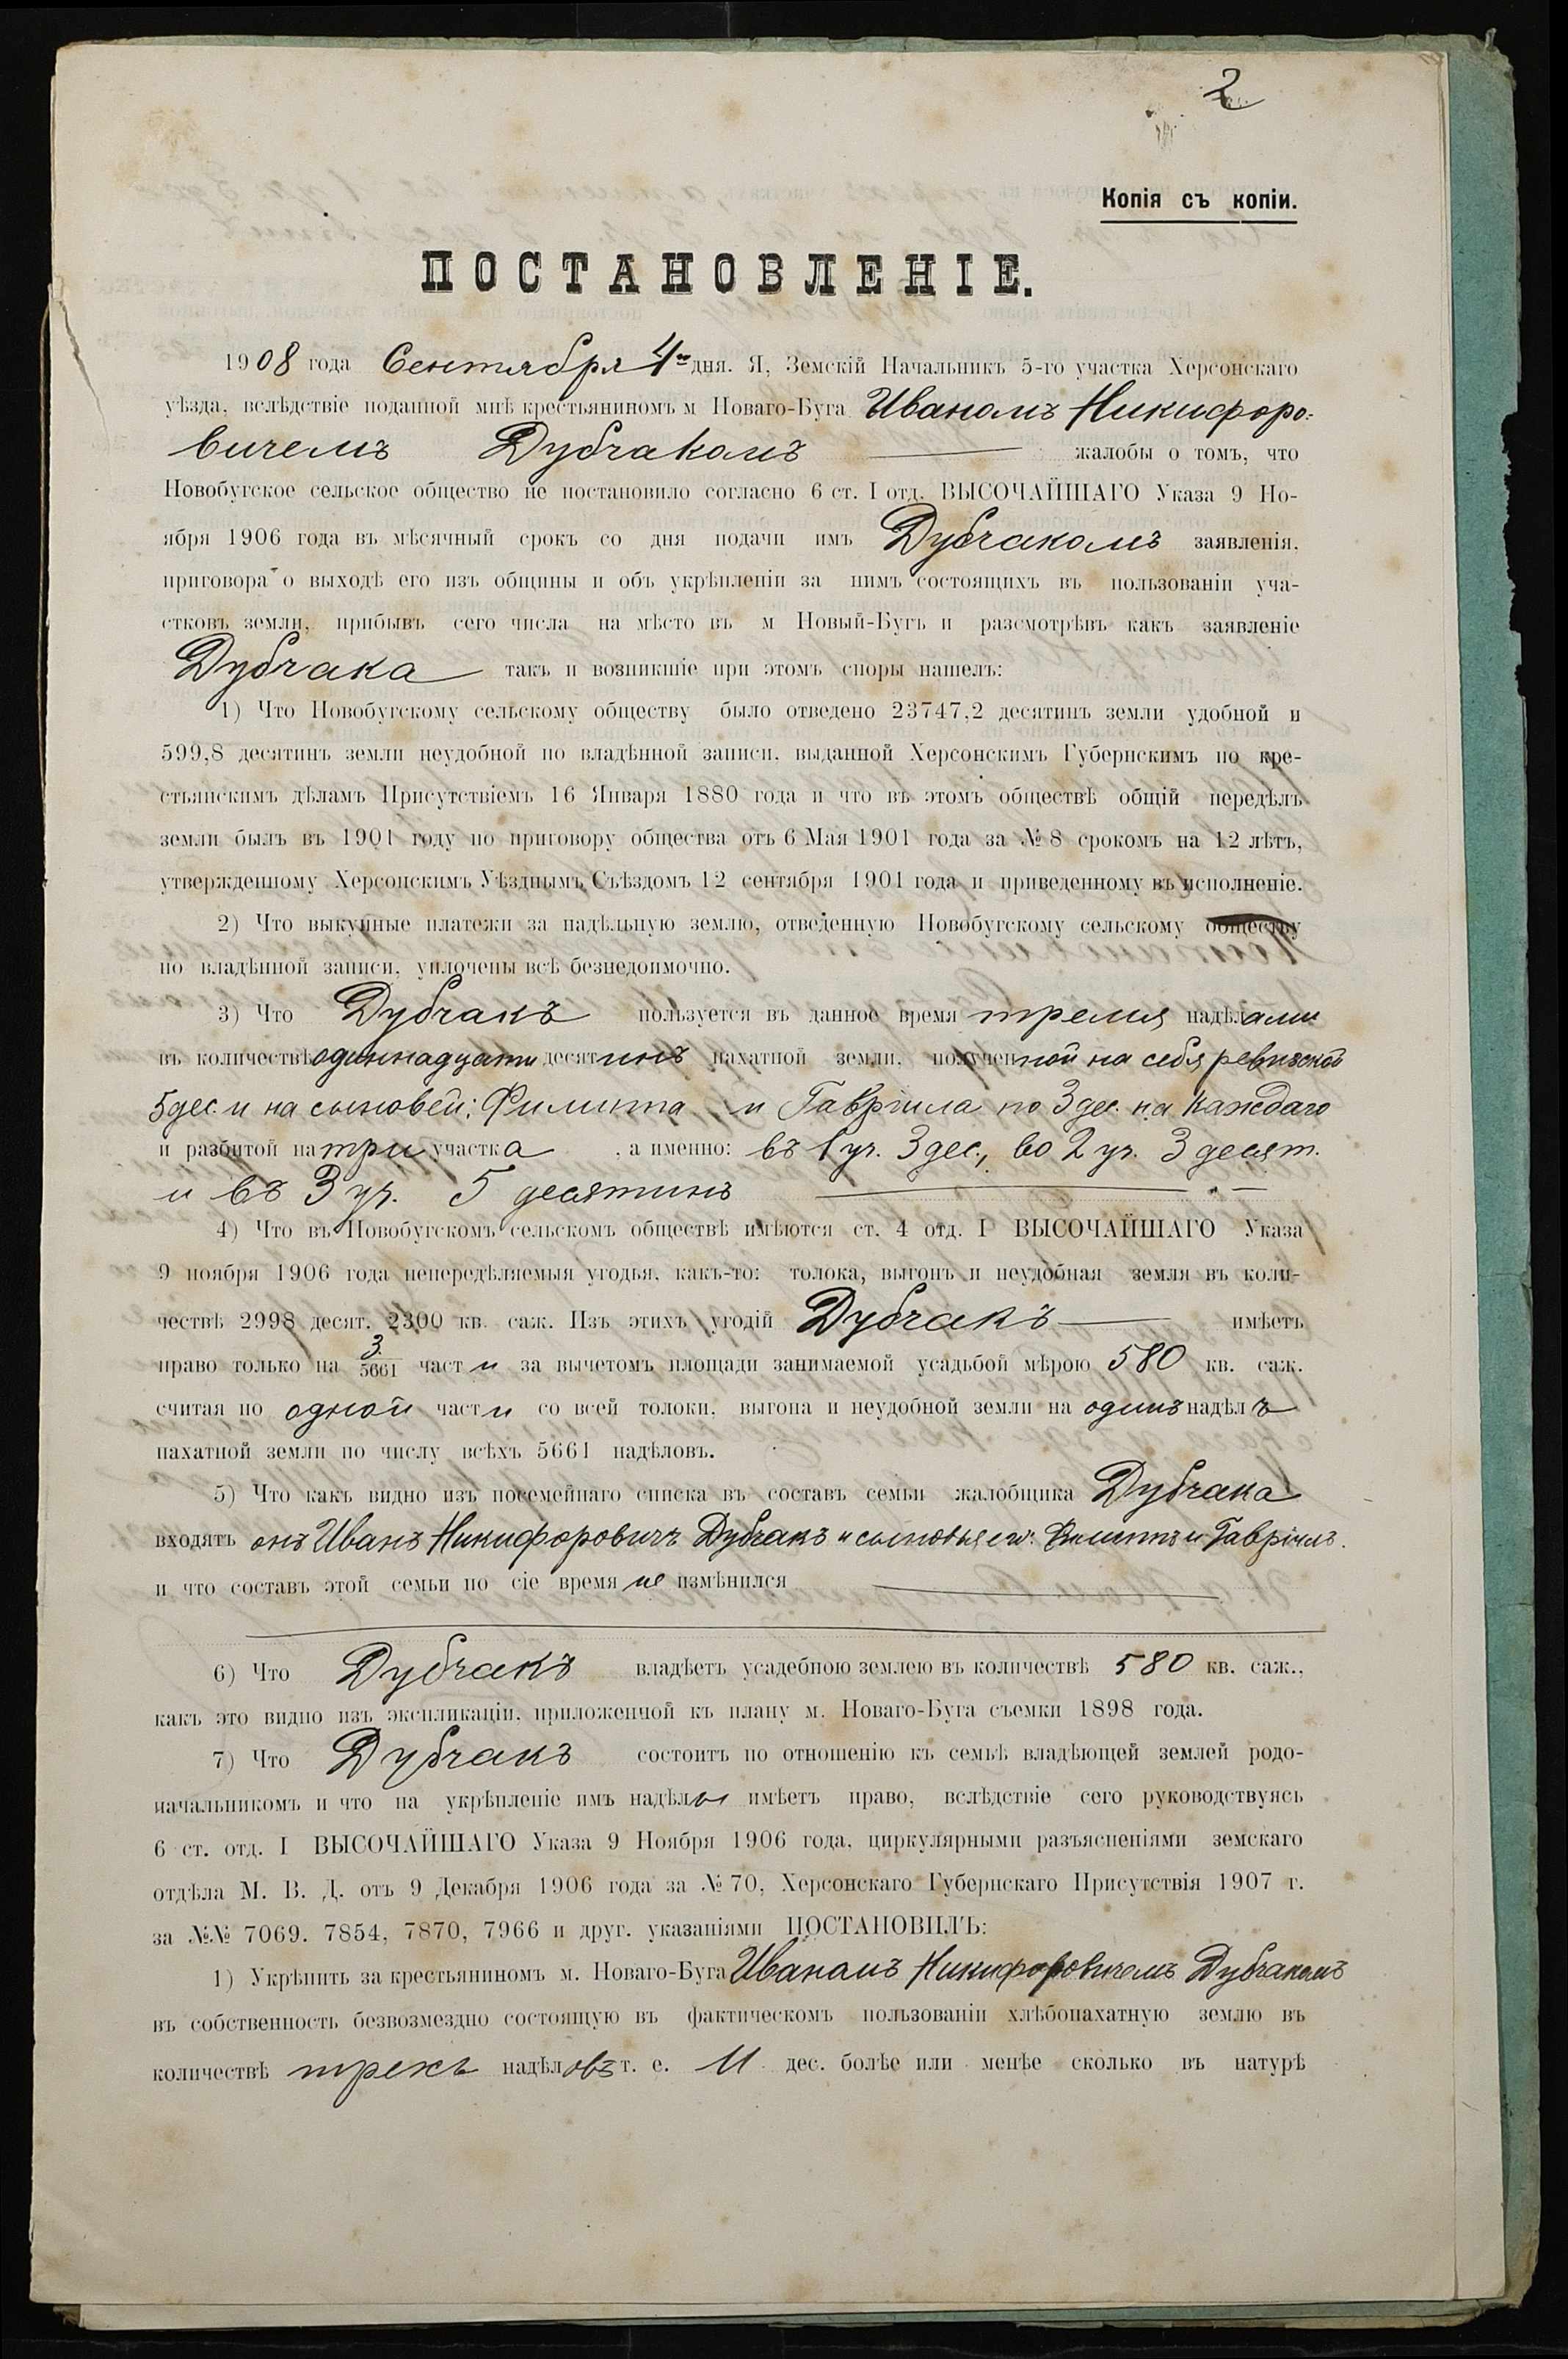 2
Копія съ копіи.
ПОСТАНОВЛЕНІЕ.
1908 года Сентября 4го дня. Я, Земскій Начальникъ 5-го участка Херсонскаго
уѣзда, вслѣдствіе поданной мнѣ крестьяниномъ м Новаго-Буга Иваномъ Никифоро-
вичемъ Дубчакомъ жалобы о томъ, что
Новобугское сельское общество не постановило согласно 6 ст. I отд. ВЫСОЧАЙШАГО Указа 9 Но-
ября 1906 года въ мѣсячный срокъ со дня подачи имъ Дубчакомъ заявленія,
приговора о выходѣ его изъ общины и объ укрѣпленіи за нимъ состоящихъ въ пользованіи уча-
стковъ земли, прибывъ сего числа на мѣсто въ м Новый-Бугъ и разсмотрѣвъ какъ заявленіе
Дубчака такъ и возникшіе при этомъ споры нашелъ:
1) Что Новобугскому сельскому обществу было отведено 23747,2 десятинъ земли удобной и
599,8 десятинъ земли неудобной по владѣнной записи, выданной Херсонскимъ Губернскимъ по кре-
стьянскимъ дѣламъ Присутствіемъ 16 Января 1880 года и что въ этомъ обществѣ общій передѣлъ
земли былъ въ 1901 году по приговору общества отъ 6 Мая 1901 года за № 8 срокомъ на 12 лѣтъ,
утвержденному Херсонскимъ Уѣзднымъ Съѣздомъ 12 сентября 1901 года и приведенному въ исполненіе.
2) Что выкупные платежи за надѣльную землю, отведенную Новобугскому сельскому обществу
по владѣнной записи, уплочены всѣ безнедоимочно.
3) Что Дубчакъ пользуется въ данное время тремя надѣлами
въ количествѣ одиннадцати десятинъ пахатной земли, полученной на себя ревизской
5 дес. и на сыновей: Филиппа и Гавріила по 3 дес. на каждаго
и разбитой на три участка , а именно: въ 1 уч. 3 дес., во 2 уч. 3 десят.
и въ 3 уч. 5 десятинъ
4) Что въ Новобугскомъ сельскомъ обществѣ имѣются ст. 4 отд. I ВЫСОЧАЙШАГО Указа
9 ноября 1906 года непередѣляемыя угодья, какъ-то: толока, выгонъ и неудобная земля въ коли-
чествѣ 2998 десят. 2300 кв. саж. Изъ этихъ угодій Дубчакъ имѣетъ
право только на 3/5661 части за вычетомъ площади занимаемой усадьбой мѣрою 580 кв. саж.
считая по одной части со всей толоки, выгона и неудобной земли на одинъ надѣлъ
пахатной земли по числу всѣхъ 5661 надѣловъ.
5) Что какъ видно изъ посемейнаго списка въ составъ семьи жалобщика Дубчака
входятъ онъ Иванъ Никифоровичъ Дубчакъ и сыновья его: Филиппъ и Гавріилъ.
и что составъ этой семьи по сіе время не измѣнился
6) Что Дубчакъ владѣетъ усадебною землею въ количествѣ 580 кв. саж.,
какъ это видно изъ экспликаціи, приложенной къ плану м. Новаго-Буга съемки 1898 года.
7) Что Дубчакъ состоитъ по отношенію къ семьѣ владѣющей землей родо-
начальникомъ и что на укрѣпленіе имъ надѣлы имѣетъ право, вслѣдствіе сего руководствуясь
6 ст. отд. I ВЫСОЧАЙШАГО Указа 9 Ноября 1906 года, циркулярными разъясненіями земскаго
отдѣла М. В. Д. отъ 9 Декабря 1906 года за № 70, Херсонскаго Губернскаго Присутствія 1907 г.
за №№ 7069. 7854, 7870, 7966 и друг. указаніями ПОСТАНОВИЛЪ:
1) Укрѣпить за крестьяниномъ м. Новаго-Буга Иваномъ Никифоровичемъ Дубчакомъ
въ собственность безвозмездно состоящую въ фактическомъ пользованіи хлѣбопахатную землю въ
количествѣ трехъ надѣловъ т. е. 11 дес. болѣе или менѣе сколько въ натурѣ